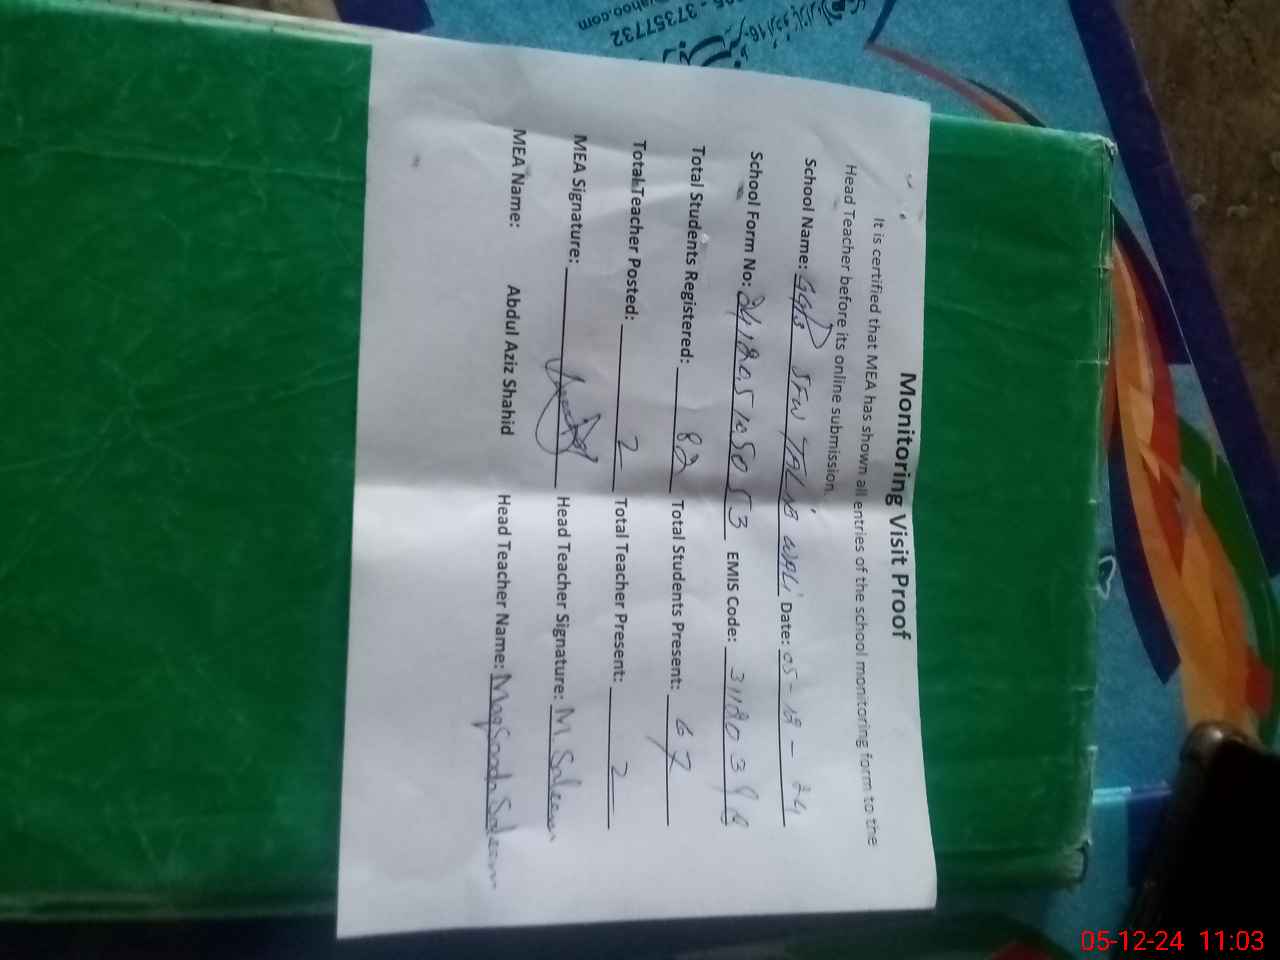 Monitoring Visit Proof
It is certified that MEA has shown all entries of the school monitoring form to the
Head Teacher before its online submission.
School Name: SFW WALI Date: 05-12-24
School Form No: EMIS Code:
Total Students Registered: 82 Total Students Present: 67
Total Teacher Posted: 2 Total Teacher Present: 2
MEA Signature: Head Teacher Signature: M. Saleem
MEA Name: Abdul Aziz Shahid Head Teacher Name: Maqsooda Saleem
37357732
ahoo.com
05-12-24 11:03